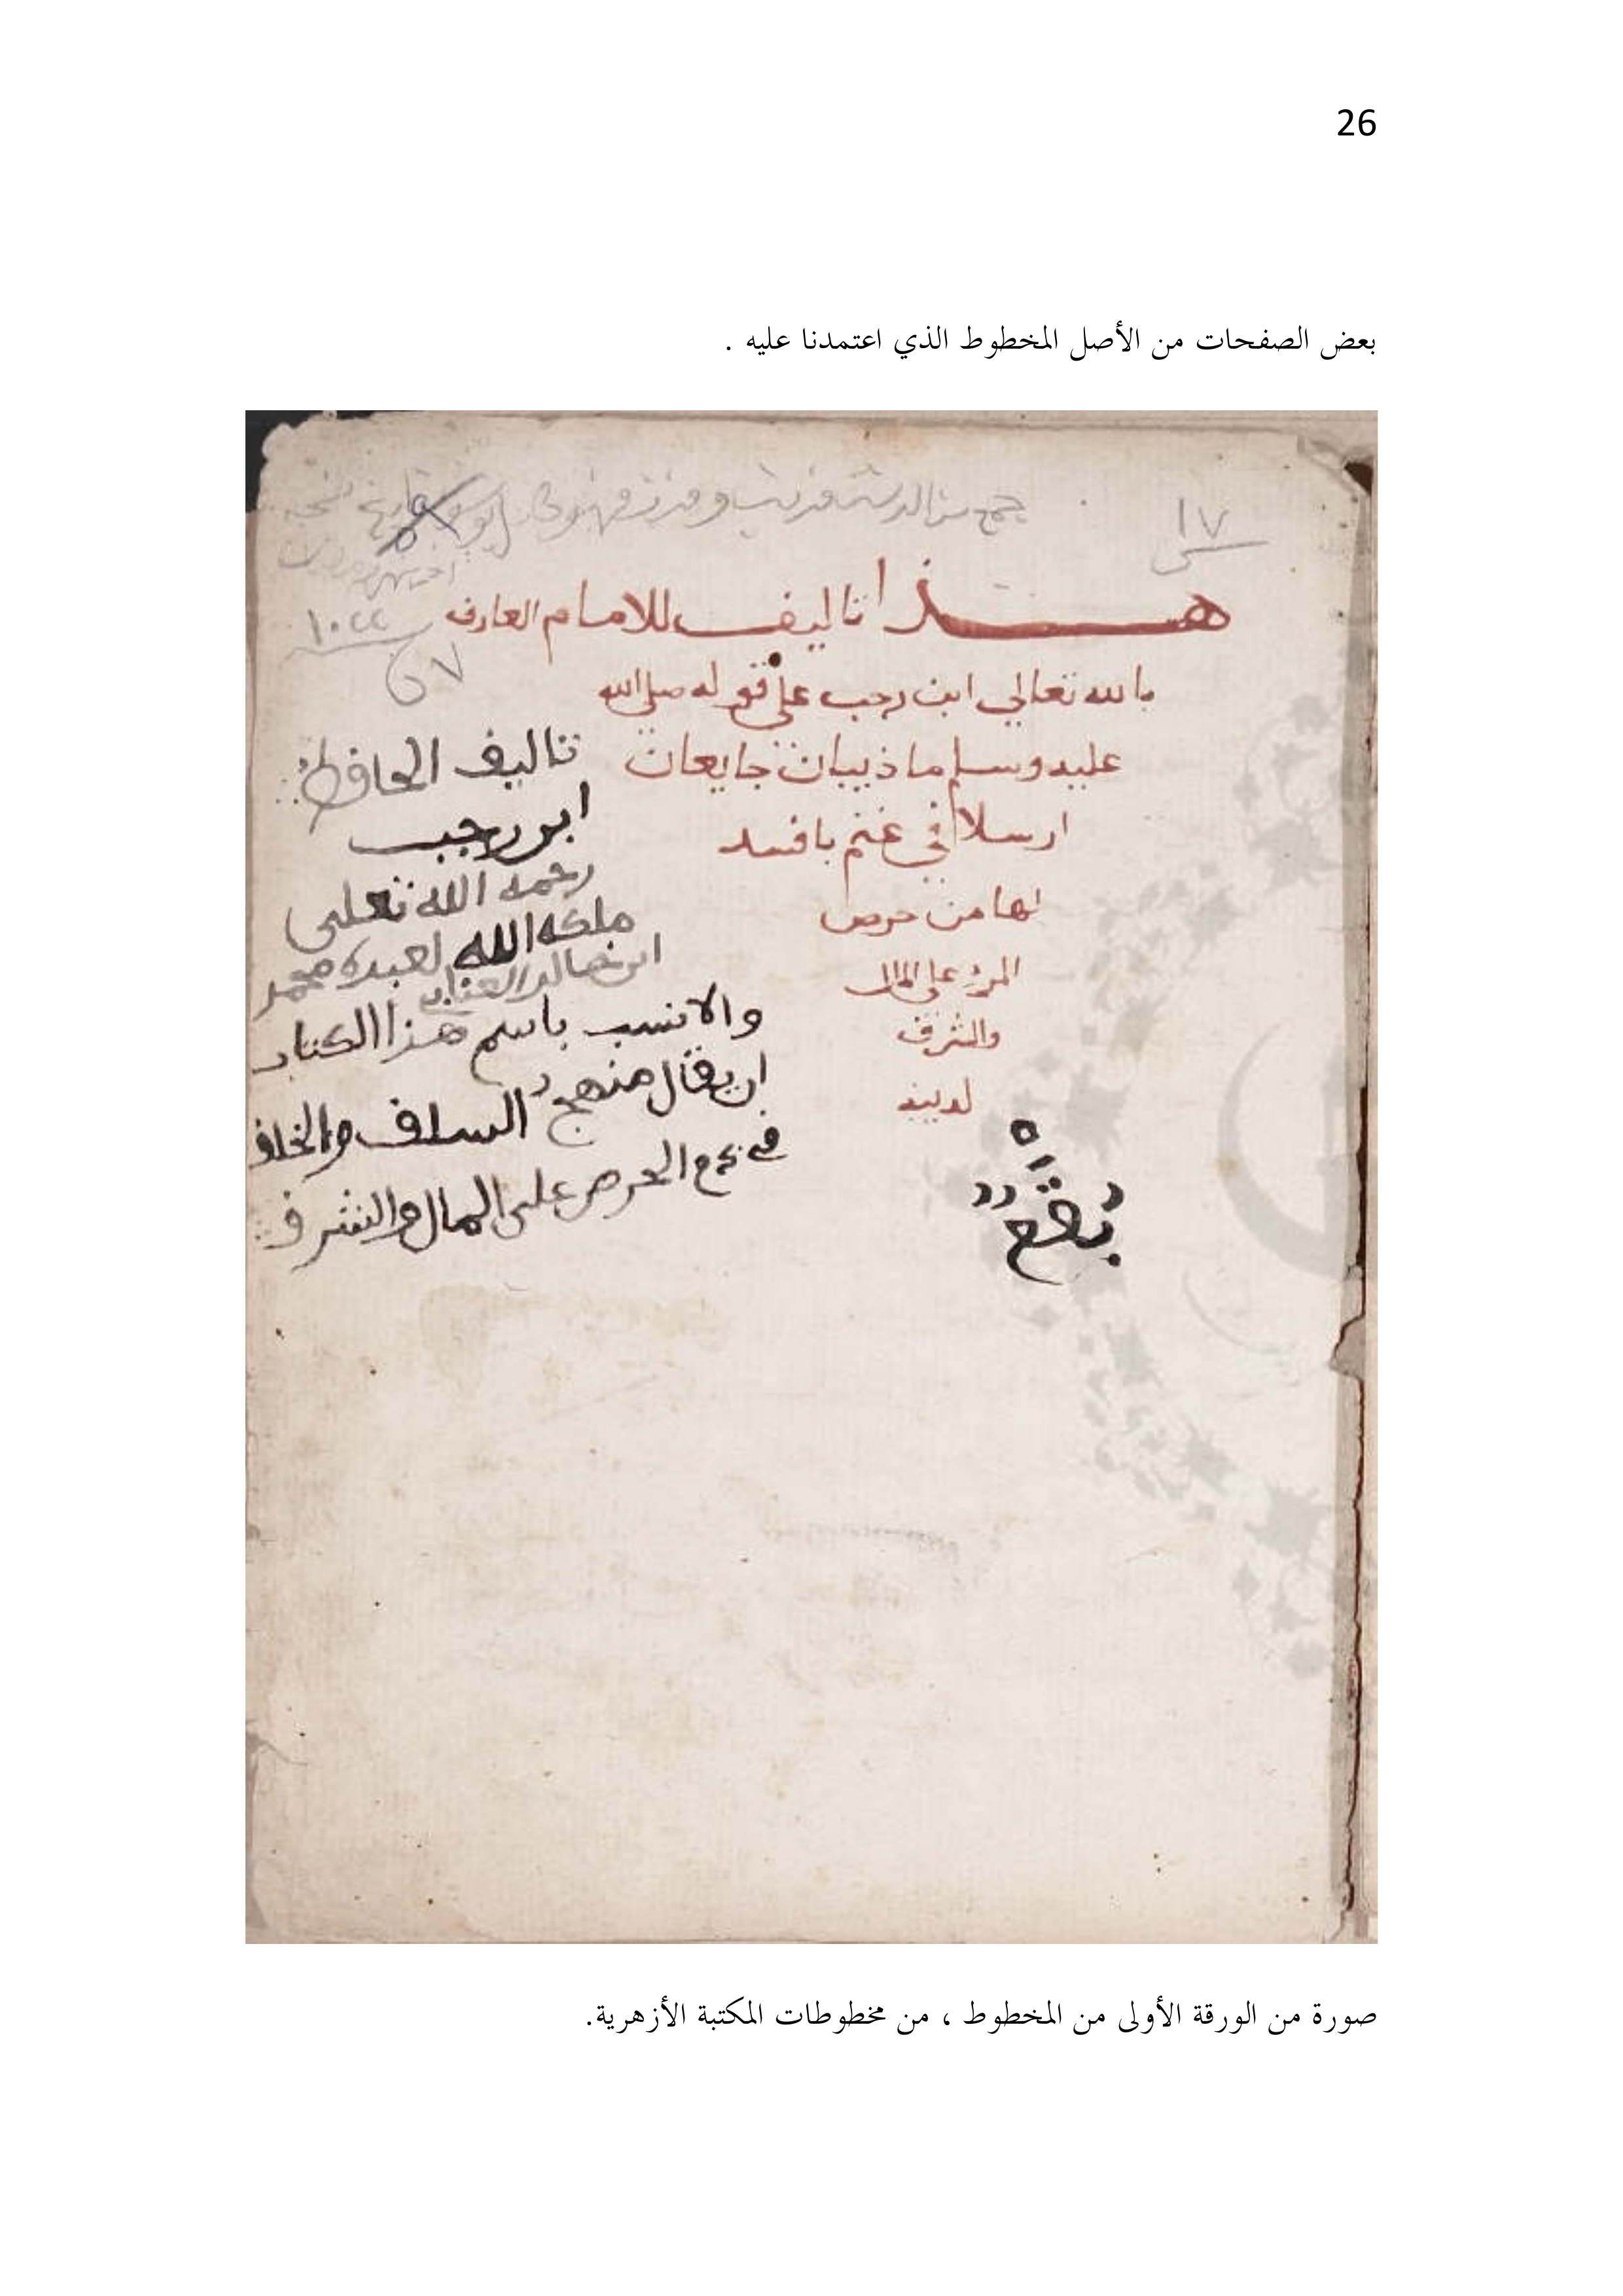 26
بعض الصفحات من الأصل المخطوط الذي اعتمدنا عليه .
١٧
هذا تاليف للامام العارف
بالله تعالي ابن رجب علي قوله صلي الله
عليه وسلم ماذيبان جايعان
ارسلا في غنم بافسد
لها من حرص
المرء علي المال
والشرف
لدينه
١٠٢٢
٧
تاليف الحافظ
ابن رجب
رحمه الله تعلى
ملكه الله لعبده محمد
ابن خالد
والانسب باسم هذا الكتاب
ان يقال منهج السلف والخلف
في الحرص على المال والشرف
صورة من الورقة الأولى من المخطوط ، من مخطوطات المكتبة الأزهرية.